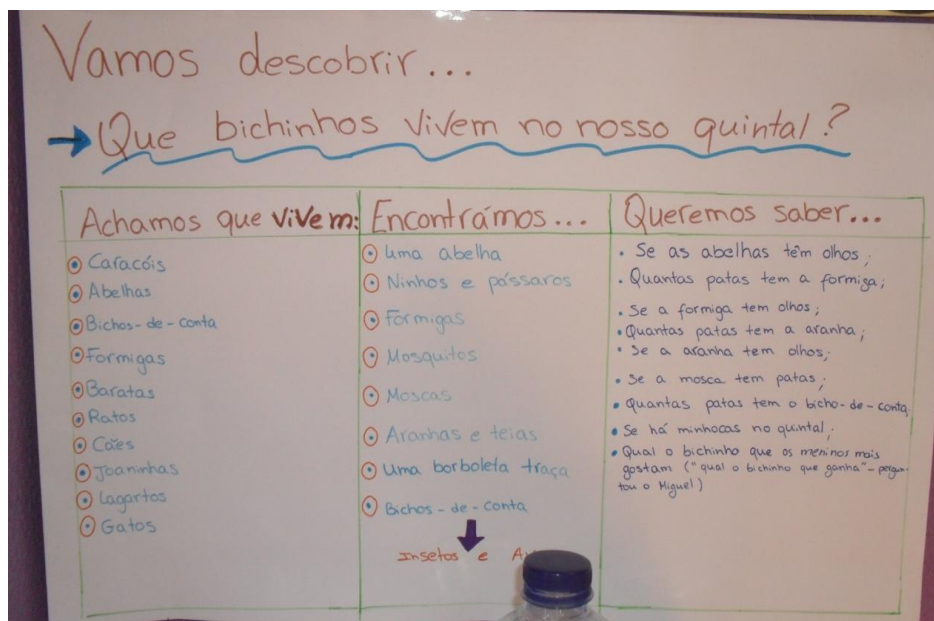 Vamos descobrir...
→ Que bichinhos vivem no nosso quintal?
Achamos que vivem:
Caracóis
Abelhas
Bichos-de-conta
Formigas
Baratas
Ratos
Cães
Joaninhas
Lagartos
Gatos
Encontrámos...
Uma abelha
Ninhos e pássaros
Formigas
Mosquitos
Moscas
Aranhas e teias
Uma borboleta traça
Bichos-de-conta
Insetos e
Queremos saber...
• Se as abelhas têm olhos;
• Quantas patas tem a formiga;
• Se a formiga tem olhos;
• Quantas patas tem a aranha;
• Se a aranha tem olhos;
• Se a mosca tem patas;
• Quantas patas tem o bicho-de-conta;
• Se há minhocas no quintal;
• Qual o bichinho que os meninos mais
gostam ("qual o bichinho que ganha"-pergun-
tou o Miguel)